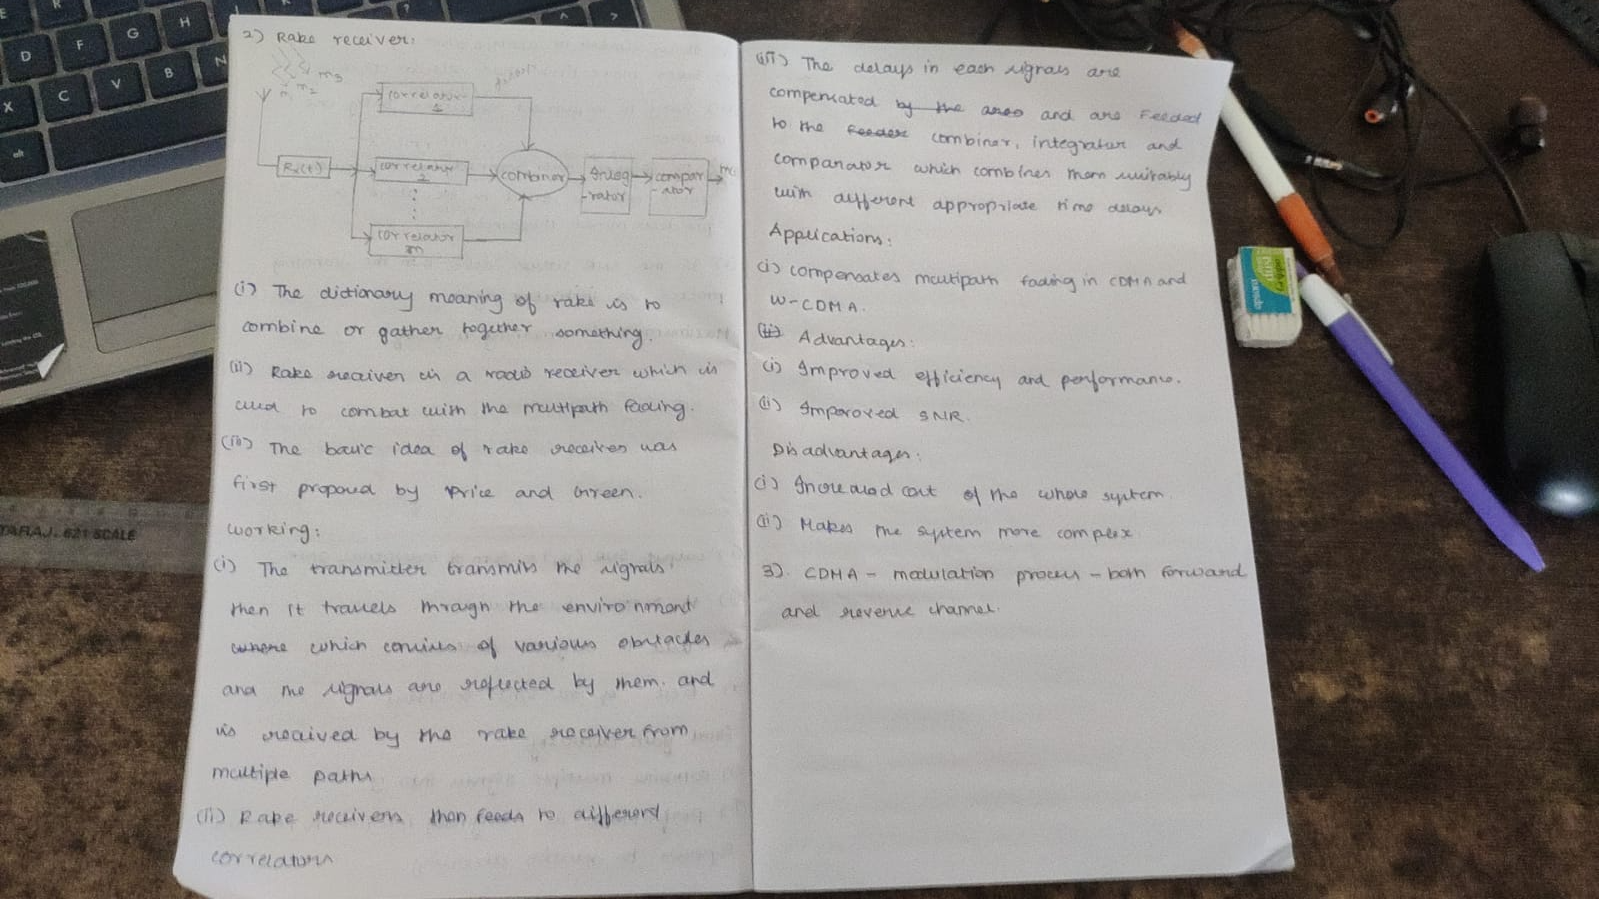 2) Rake receiver:
m3
m2
correlator
1
Rx(t)
correlator
2
combiner
Integ
-rator
compar
-ator
correlator
m
(i) The dictionary meaning of rake is to
combine or gather together something.
(ii) Rake receiver is a radio receiver which is
used to combat with the multipath fading.
(iii) The basic idea of rake receiver was
first proposed by Price and Green.
Working:
(i) The transmitter transmits the signals
then it travels through the environment
where which consists of various obstacles
and the signals are reflected by them. and
is received by the rake receiver from
multiple paths
(ii) Rake receivers then feeds to different
correlators
(iii) The delays in each signals are
compensated by the and are Feeded
to the combiner, integrator and
comparator which combines them suitably
with different appropriate time delays
Applications:
(i) compensates multipath fading in CDMA and
W-CDMA.
Advantages:
(i) Improved efficiency and performance.
(ii) Improved SNR.
Disadvantages:
(i) Increased cost of the whole system.
(ii) Makes the system more complex
3). CDMA - modulation process - both forward
and reverse channel.
TARAJ. 621 SCALE
D
F
G
H
X
C
V
B
N
alt